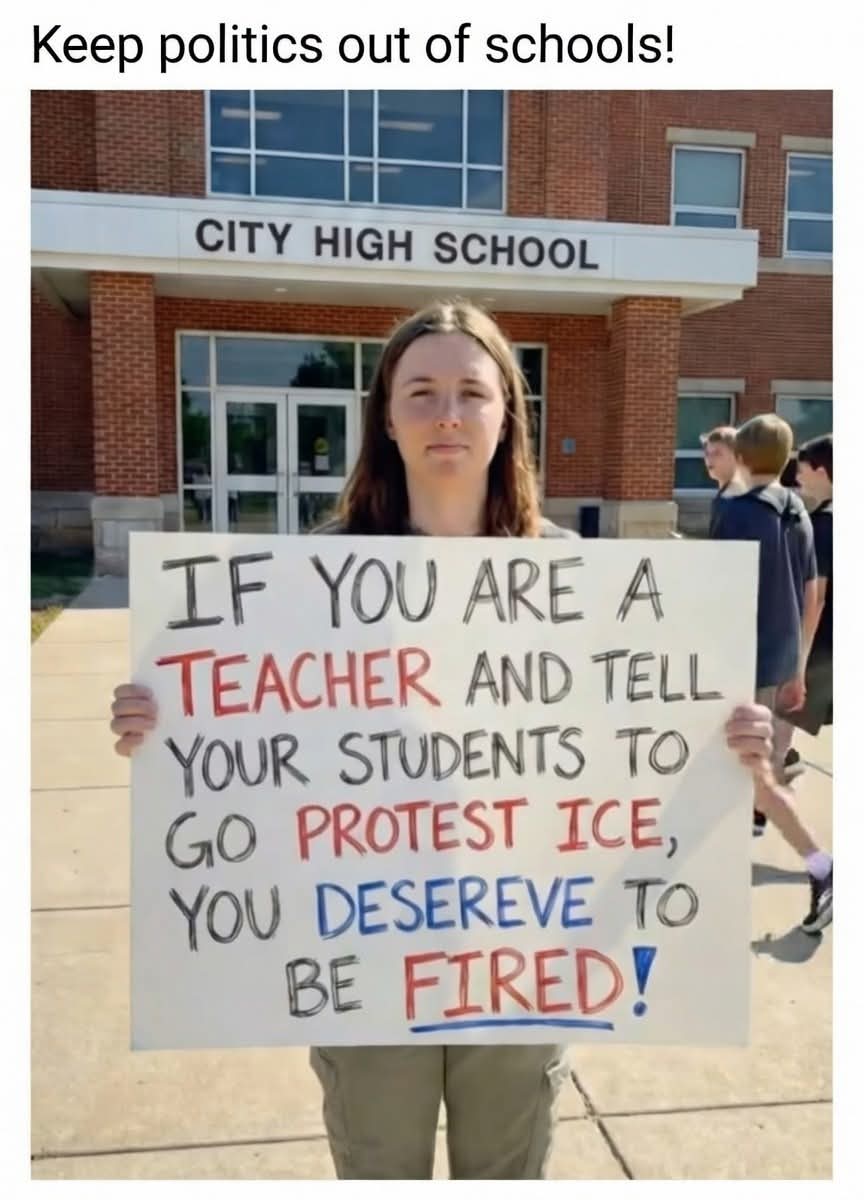 Keep politics out of schools!
CITY HIGH SCHOOL
IF YOU ARE A
TEACHER AND TELL
YOUR STUDENTS TO
GO PROTEST ICE,
YOU DESEREVE TO
BE FIRED!